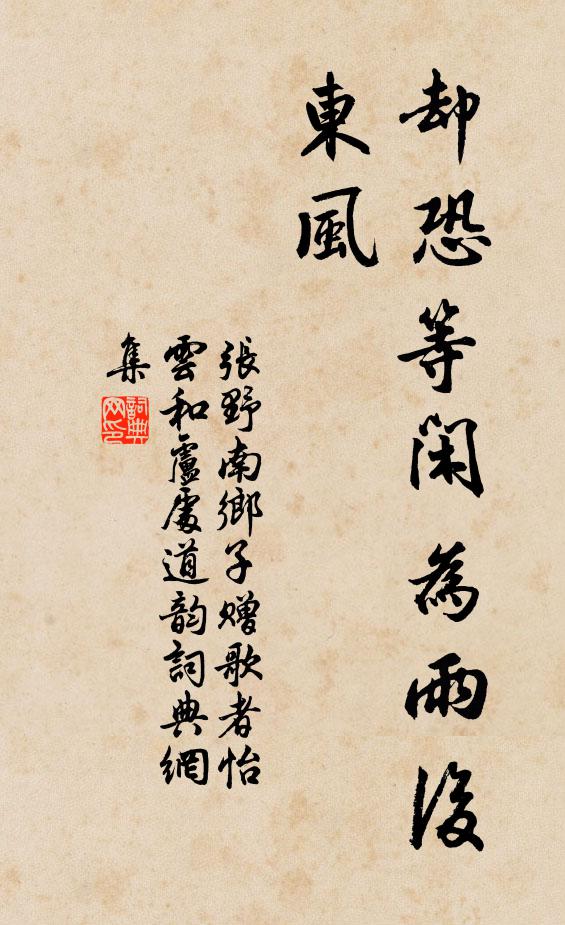 却恐等闲為雨後
東風
張野南鄉子贈歌者怡
雲和盧處道韵詞典網
集
詞典
网印